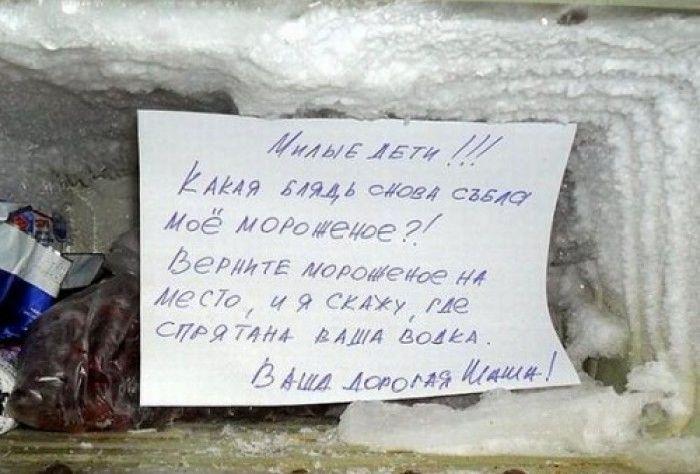 Милые дети!!!
Какая блядь снова съела
моё мороженое?!
Верните мороженое на
место, и я скажу, где
спрятана ваша водка.
Ваша дорогая Маша!